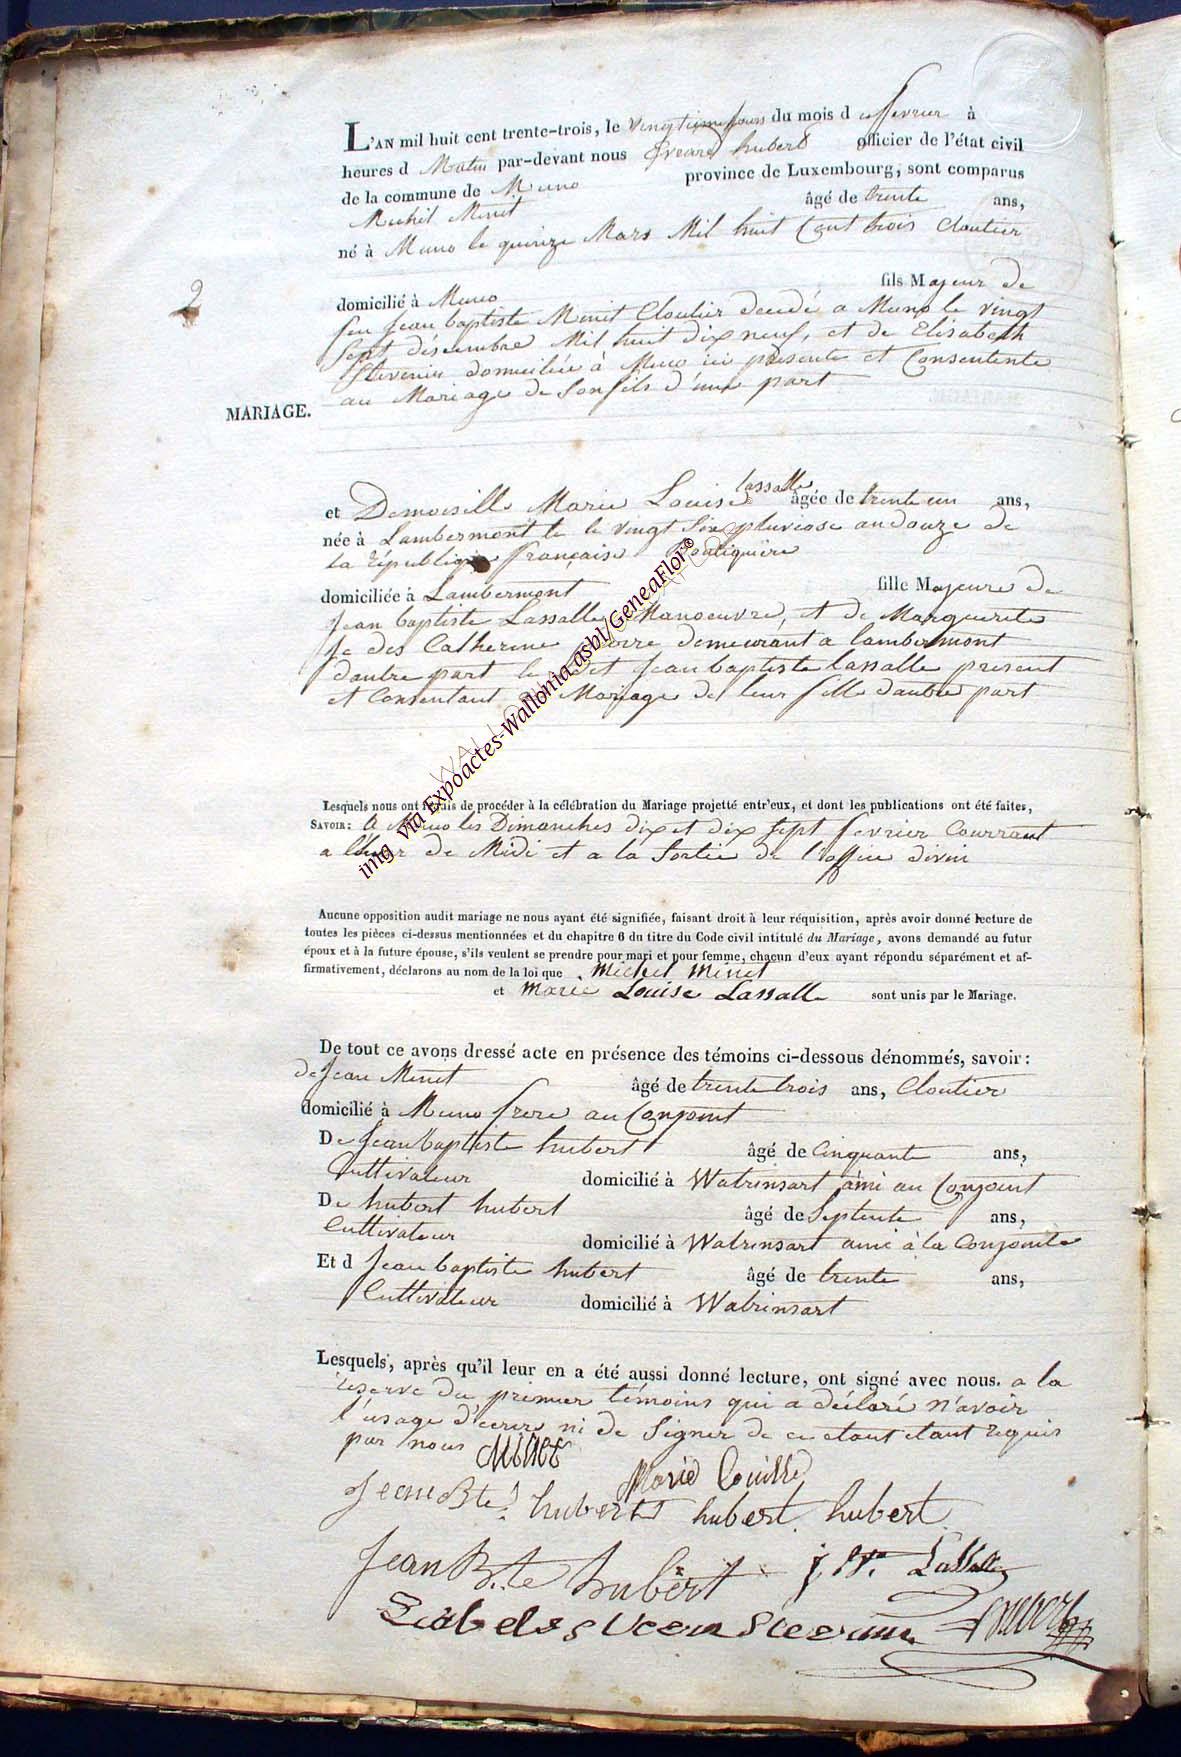 L'AN mil huit cent trente-trois, le vingtieme jours du mois d fevrier à
heures d Matin par-devant nous hubert officier de l'état civil
de la commune de Muno province de Luxembourg, sont comparus
Michel Minet âgé de trente ans,
né à Muno le quinze Mars Mil huit Cent trois Cloutier
2
domicilié à Muno fils Majeur de
feu Jean baptiste Minet Cloutier decedé a Muno le vingt
Sept désembre Mil huit dix neuf, et de Elisabeth
domiciliée à Muno ici présente et Consentente
au Mariage de Son fils d'une part
MARIAGE.
et Demoiselle Marie Louise Lassalle âgée de trente un ans,
née à Lambermont le le vingt Six pluviose an douze de
la république française Boutiquière
domiciliée à Lambermont fille Majeure de
Jean baptiste Lassalle Manoeuvre, et de Marguerite
Catherine demeurant a lambermont
dautre part et Jean baptiste lassalle present
et Consentant au Mariage de leur fille dautre part
img via Expoactes-Wallonia asbl/GeneaFlor®
Lesquels nous ont requis de procéder à la célébration du Mariage projetté entr'eux, et dont les publications ont été faites,
SAVOIR: A Muno les Dimanches dix et dix Sept fevrier Courrant
a l'heur de Midi et a la Sortie de l'office divin
Aucune opposition audit mariage ne nous ayant été signifiée, faisant droit à leur réquisition, après avoir donné lecture de
toutes les pièces ci-dessus mentionnées et du chapitre 6 du titre du Code civil intitulé du Mariage, avons demandé au futur
époux et à la future épouse, s'ils veulent se prendre pour mari et pour femme, chacun d'eux ayant répondu séparément et af-
firmativement, déclarons au nom de la loi que Michel Minet
et Marie Louise Lassalle sont unis par le Mariage.
De tout ce avons dressé acte en présence des témoins ci-dessous dénommés, savoir:
de Jean Minet âgé de trente trois ans, Cloutier
domicilié à Muno frere au Conjoint
De Jean baptiste hubert âgé de Cinquante ans,
Cultivateur domicilié à Watrinsart ami au Conjoint
De hubert hubert âgé de Septente ans,
Cultivateur domicilié à Watrinsart ami à la Conjointe
Et d Jean baptiste hubert âgé de trente ans,
Cultivateur domicilié à Watrinsart
Lesquels, après qu'il leur en a été aussi donné lecture, ont signé avec nous. a la
reserve du premier témoins qui a déclaré n'avoir
l'usage d'ecrire ni de Signer de ce etant requis
par nous Minet
Marie Louisse
Jean Bte hubert hubert hubert
Jean Bte hubert j. Bte Lassalle
hubert